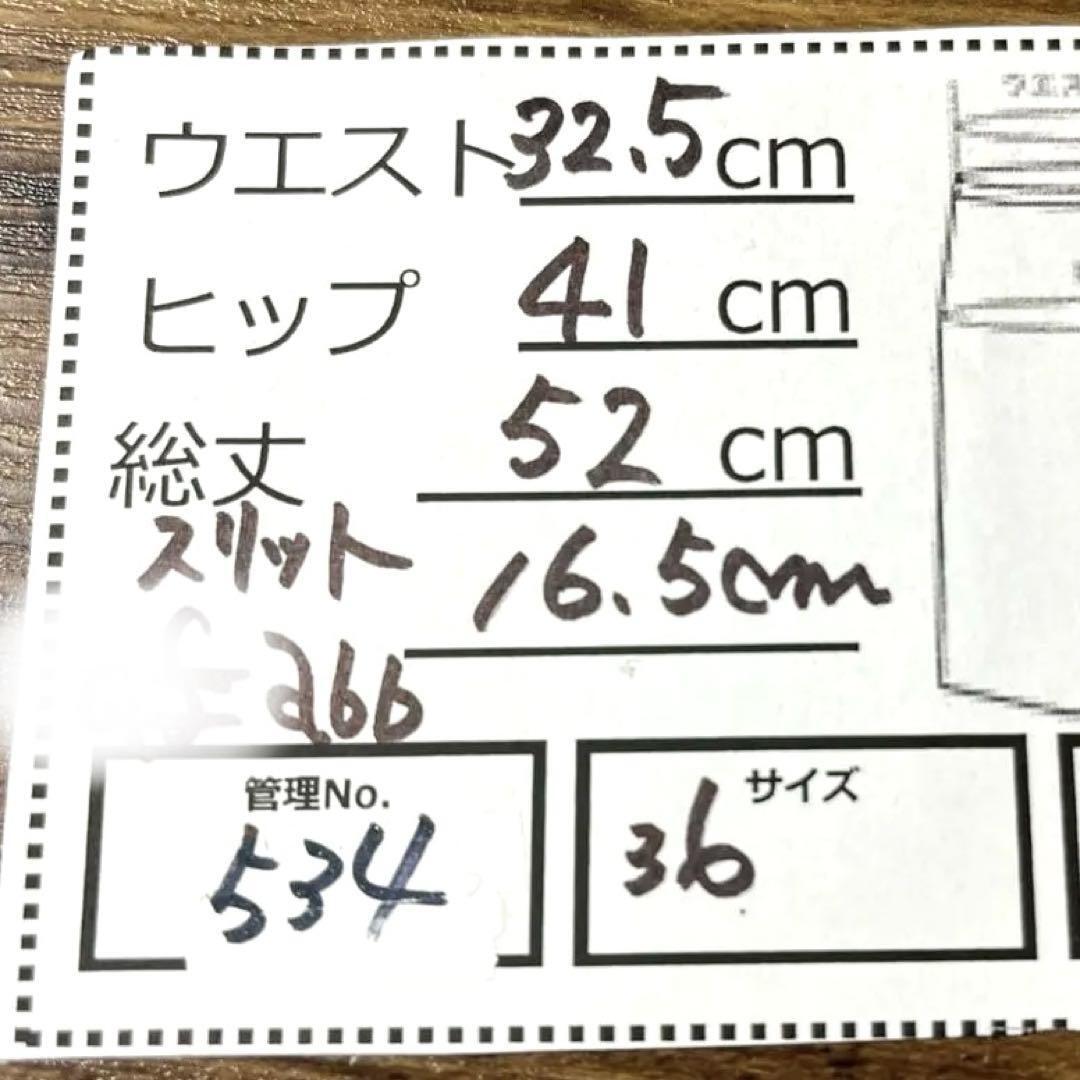 ウエスト 32.5 cm
ヒップ 41 cm
総丈 52 cm
スリット 16.5cm
266
管理No.
534
サイズ
36